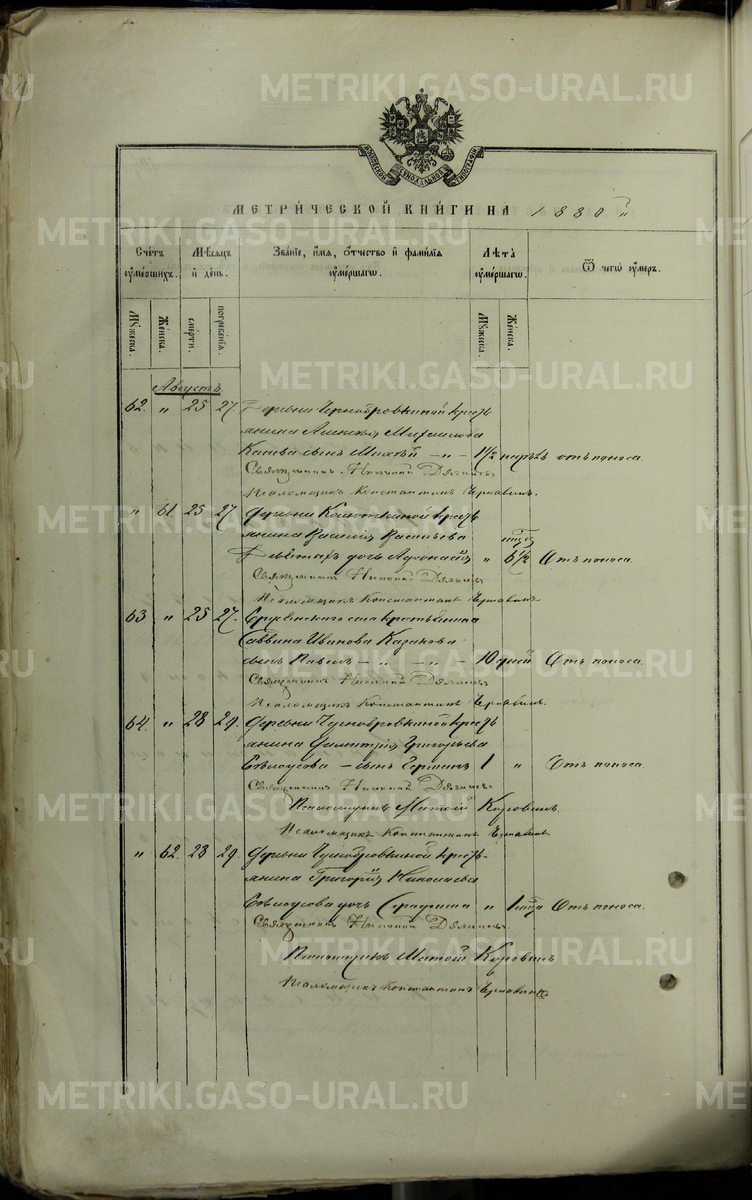 METRIKI.GASO-URAL.RU
МЕТРИ́ЧЕСКОЙ КНИ́ГИ НА 1880 "
Сче́тъ ᲂу҆ме́ршихъ.
Мѣ́сяцъ и҆ де́нь.
Зва́нїе, и҆́мя, ѻ҆́тчество и҆ фами́лїя ᲂу҆ме́ршагѡ.
Лѣ́та ᲂу҆ме́ршагѡ.
Ѿ чегѡ̀ ᲂу҆́меръ.
Мꙋ́жеска.
Же́нска.
сме́рти.
погребе́нїя.
Мꙋ́жеска.
Же́нска.
Августъ
62. " 25 27. Деревни Чернобровкиной кресть
янина Алексѣя Михаилова
сынъ Матѳей — " — 1½ отъ поноса.
Священникъ Николай
Псаломщикъ Константинъ Чернавинъ.
" 61. 25 27. Деревни кресть
янина Василія Васильева
дочь " 6½ Отъ поноса.
Священникъ Николай
Псаломщикъ Константинъ Чернавинъ
63 " 25 27. села крестьянина
Саввина Иванова Казакова
сынъ Павелъ — " — " — 10 дней Отъ поноса.
Священникъ Николай
Псаломщикъ Константинъ Чернавинъ.
64. " 28 29. Деревни Чернобровкиной кресть
янина Димитрія Григорьева
Бѣлоусова — сынъ Германъ 1 " Отъ поноса.
Священникъ Николай
Псаломщикъ Матѳій Коровинъ
Псаломщикъ Константинъ Чернавинъ
" 62. 28 29. Деревни Чернобровкиной кресть-
янина Григорія Николаева
Бѣлоусова дочь " 1 Отъ поноса.
Священникъ Николай
Псаломщикъ Матѳій Коровинъ
Псаломщикъ Константинъ Чернавинъ